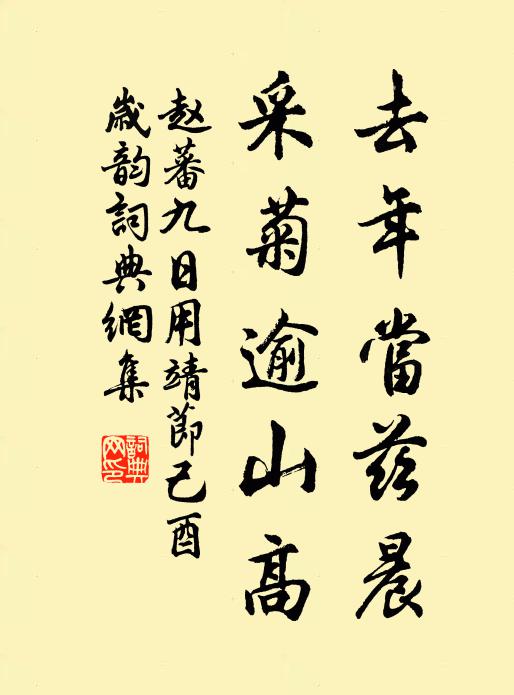 去年當茲晨
采菊逾山高
赵蕃九日用靖節己酉
歲韵詞典網集
詞典网印